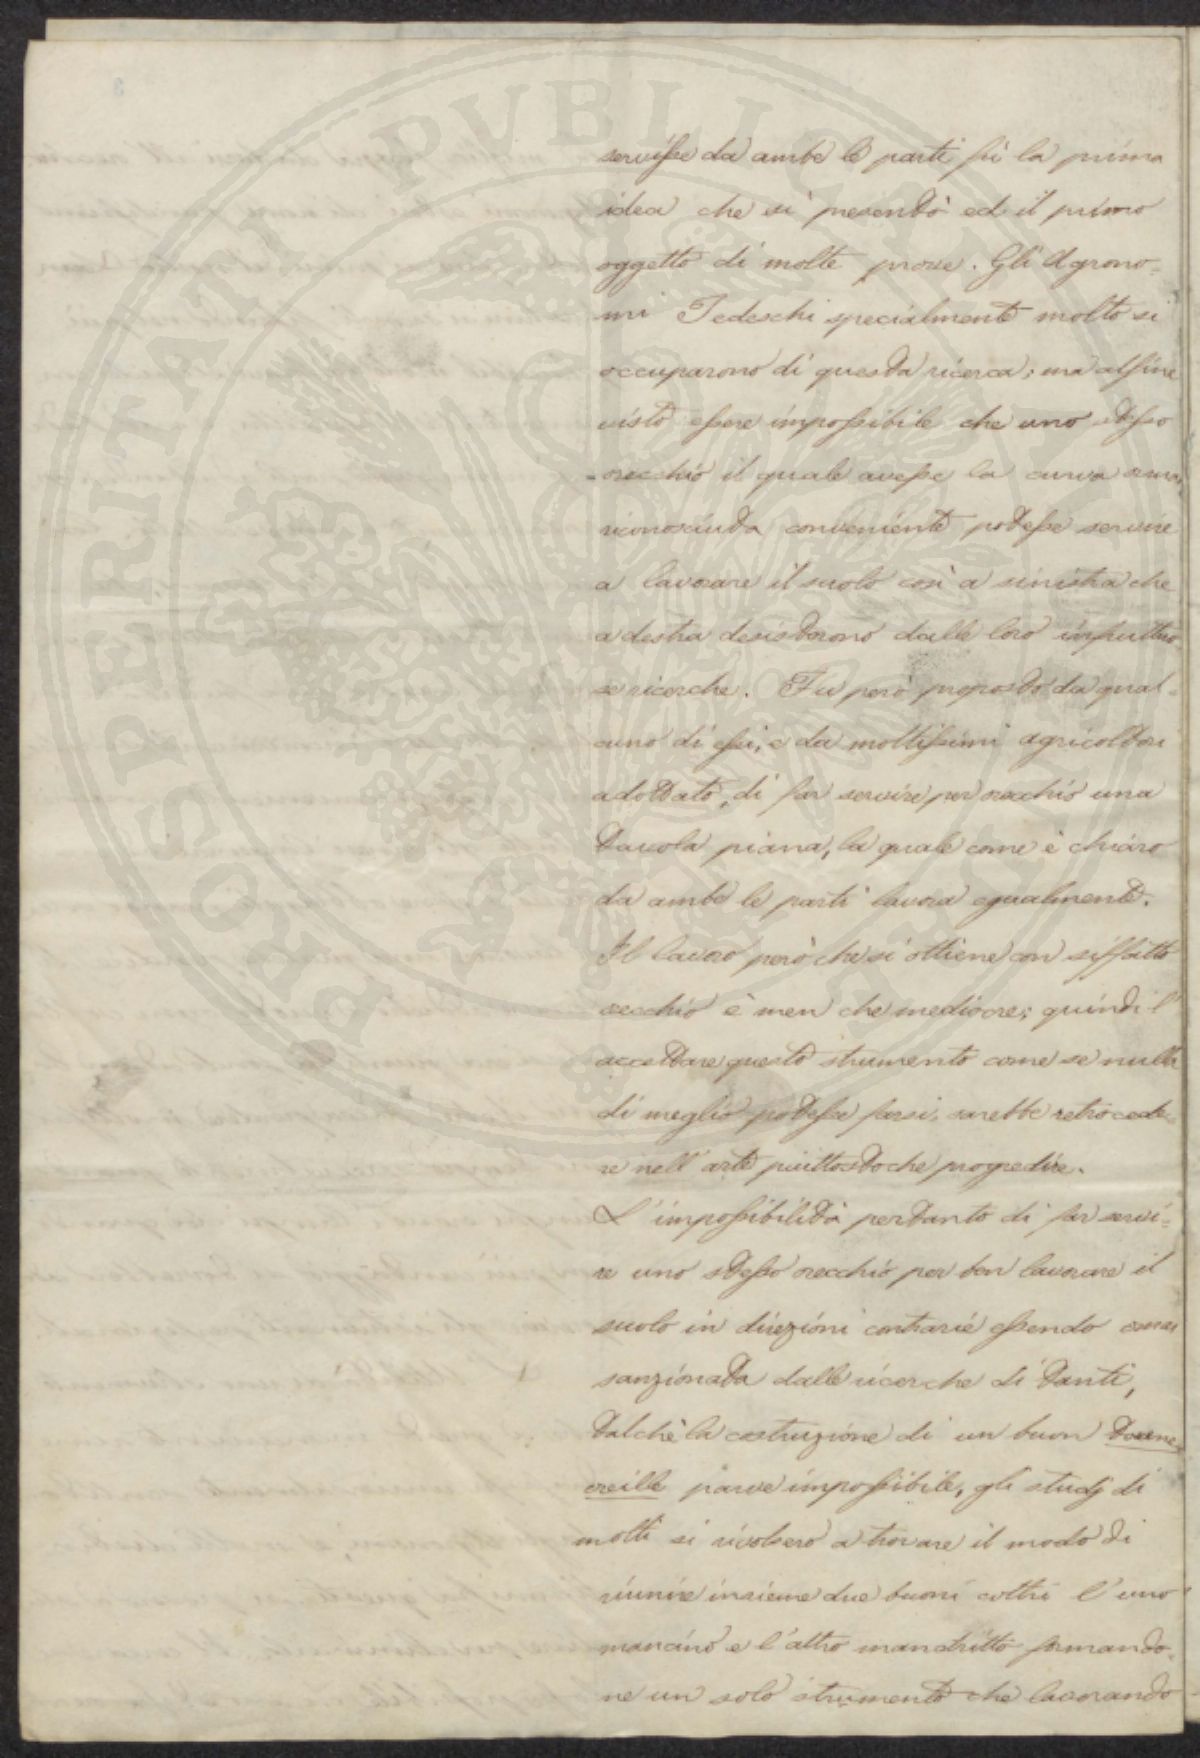 PROSPERITATI PUBLICAE
servisse da ambe le parti fù la prima
idea che si presentò ed il primo
oggetto di molte prove. Gli Agrono=
mi Tedeschi specialmente molto si
occuparono di questa ricerca; ma alfine
visto essere impossibile che uno stesso
orecchio il quale avesse la curva omai
riconosciuta conveniente potesse servire
a lavorare il suolo così a sinistra che
a destra desisterono dalle loro infruttuo=
se ricerche. Fu però proposto da qual=
cuno di essi, e da moltissimi agricoltori
adottato, di far servire per orecchio una
tavola piana, la quale come è chiaro
da ambe le parti lavora egualmente.
Il lavoro però che si ottiene con siffatto
orecchio è men che mediocre; quindi l'
accettare questo strumento come se nulla
di meglio potesse farsi, sarebbe retrocede=
re nell'arte piuttosto che progredire.
L'impossibilità pertanto di far servi=
re uno stesso orecchio per ben lavorare il
suolo in direzioni contrarie essendo omai
sanzionata dalle ricerche di tanti,
talchè la costruzione di un buon tourne
oreille parve impossibile, gli studj di
molti si rivolsero a trovare il modo di
riunire insieme due buoni coltri l'uno
mancino e l'altro mandritto formando=
ne un solo strumento che lavorando